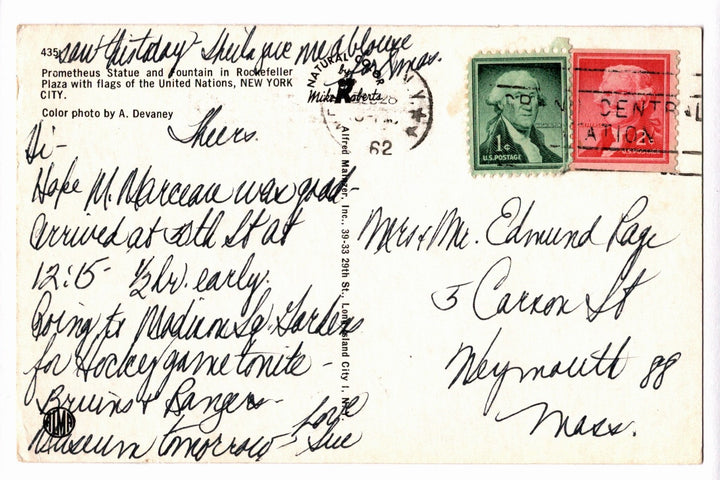 saw this today Sheila gave me a blouse
for Xmas.
435
Prometheus Statue and Fountain in Rockefeller
Plaza with flags of the United Nations, NEW YORK
CITY.
Color photo by A. Devaney
NATURAL COLOR
by
Mike Roberts
N.Y.
28
62
1¢
U.S. POSTAGE
2¢
GRAND CENTRAL
STATION
Thurs.
Hi-
Hope M. Marceau was good-
Arrived at 50th St at
12:15- ½ hr. early.
Going to Madison Sq. Gardens
for Hockey game tonite-
Bruins & Rangers-
Museum tomorrow- Love
Sue
Alfred Mainzer, Inc., 39-33 29th St., Long Island City 1, N.Y.
Mrs & Mr. Edmund Page
5 Carron St
Weymouth 88
Mass.